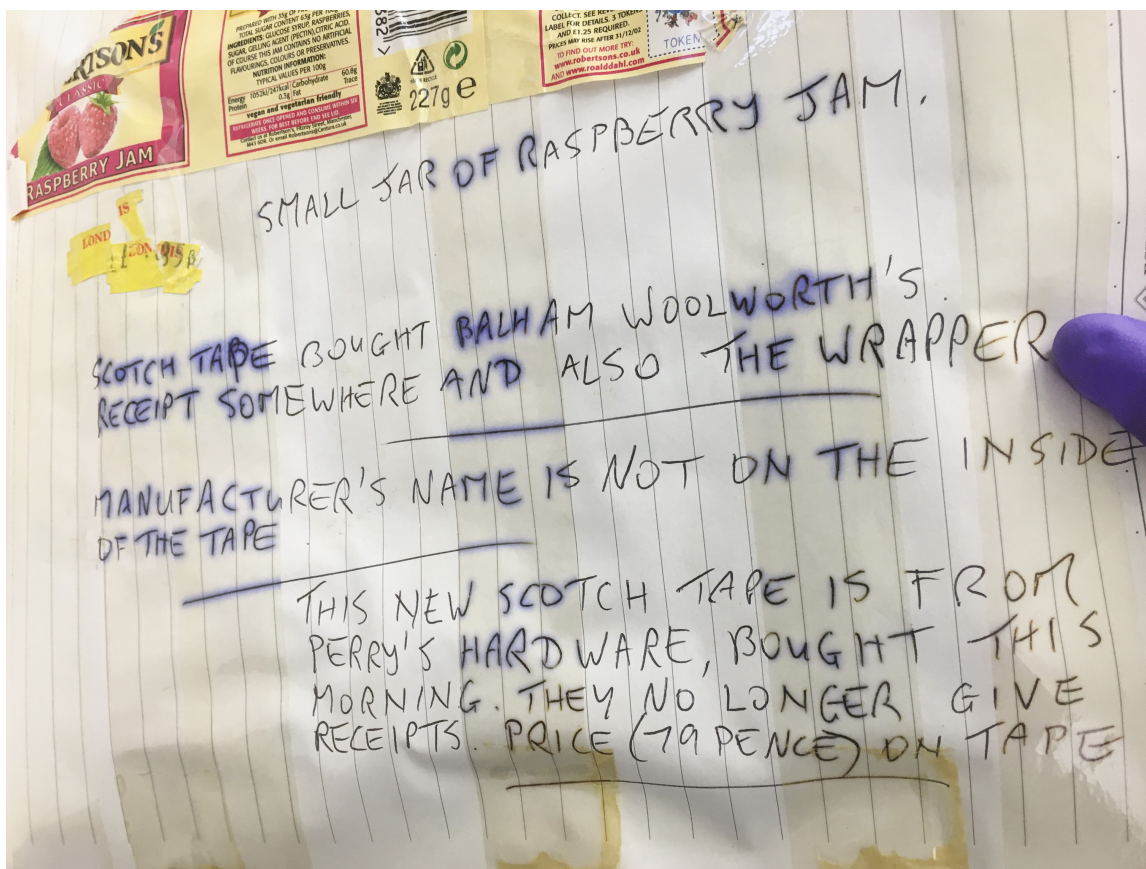 ERTSON'S
CLASSIC
RASPBERRY JAM
PREPARED WITH 35g OF
TOTAL SUGAR CONTENT 63g PER
INGREDIENTS: GLUCOSE SYRUP, RASPBERRIES,
SUGAR, GELLING AGENT (PECTIN), CITRIC ACID.
OF COURSE THIS JAM CONTAINS NO ARTIFICIAL
FLAVOURINGS, COLOURS OR PRESERVATIVES.
NUTRITION INFORMATION:
TYPICAL VALUES PER 100g
Energy 1052kJ/247kcal Carbohydrate 60.8g
Protein 0.3g Fat Trace
vegan and vegetarian friendly
REFRIGERATE ONCE OPENED AND CONSUME WITHIN SIX
WEEKS. FOR BEST BEFORE END SEE LID.
227g e
COLLECT. SEE
LABEL FOR DETAILS. 3 TOKENS
AND £1.25 REQUIRED.
PRICES MAY RISE AFTER 31/12/02
TO FIND OUT MORE TRY:
www.robertsons.co.uk
AND www.roalddahl.com
TOKEN
SMALL JAR OF RASPBERRY JAM.
LOND IS
LON DIS
SCOTCH TAPE BOUGHT BALHAM WOOLWORTH'S.
RECEIPT SOMEWHERE AND ALSO THE WRAPPER
MANUFACTURER'S NAME IS NOT ON THE INSIDE
OF THE TAPE
THIS NEW SCOTCH TAPE IS FROM
PERRY'S HARDWARE, BOUGHT THIS
MORNING. THEY NO LONGER GIVE
RECEIPTS. PRICE (79 PENCE) ON TAPE